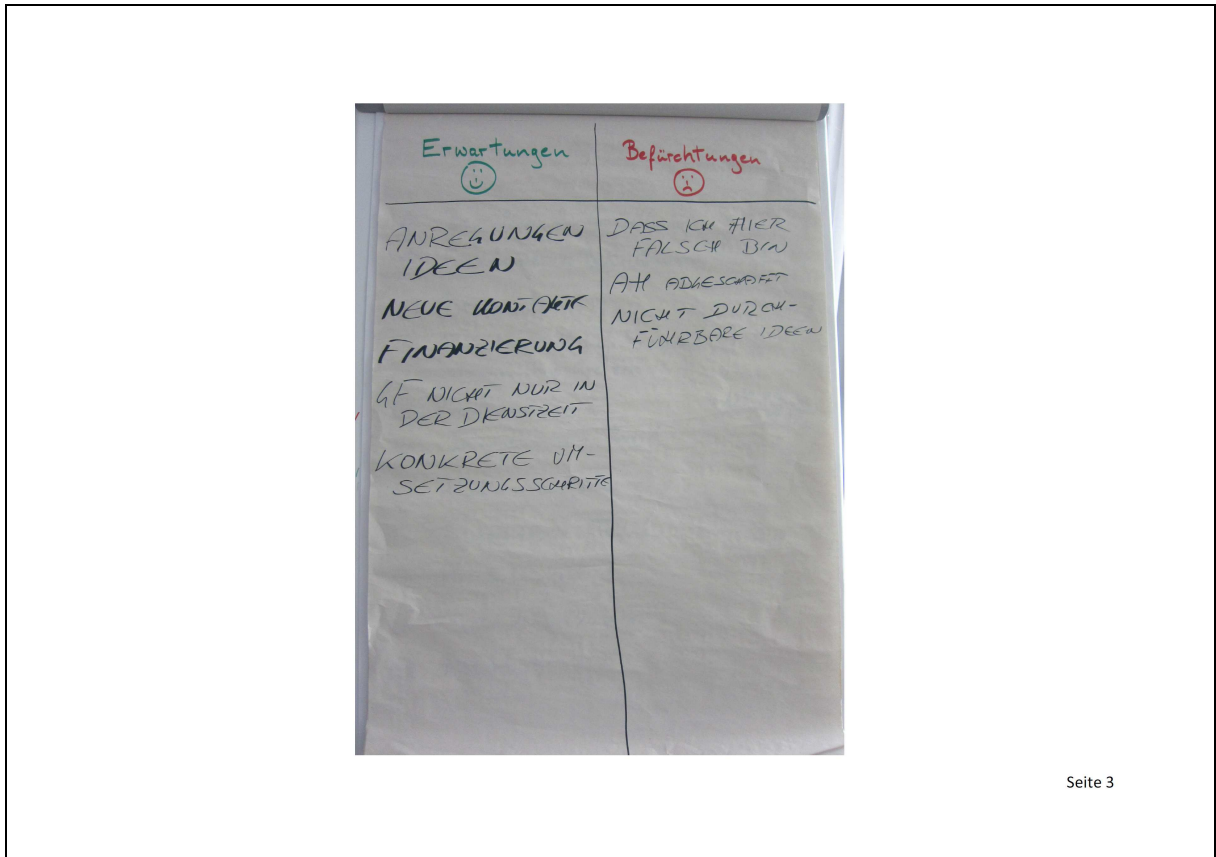 Erwartungen
ANREGUNGEN
IDEEN
NEUE KONTAKTE
FINANZIERUNG
GF NICHT NUR IN
DER DIENSTZEIT
KONKRETE UM-
SETZUNGSSCHRITTE
Befürchtungen
DASS ICH HIER
FALSCH BIN
AH ABGESCHAFFT
NICHT DURCH-
FÜHRBARE IDEEN
Seite 3